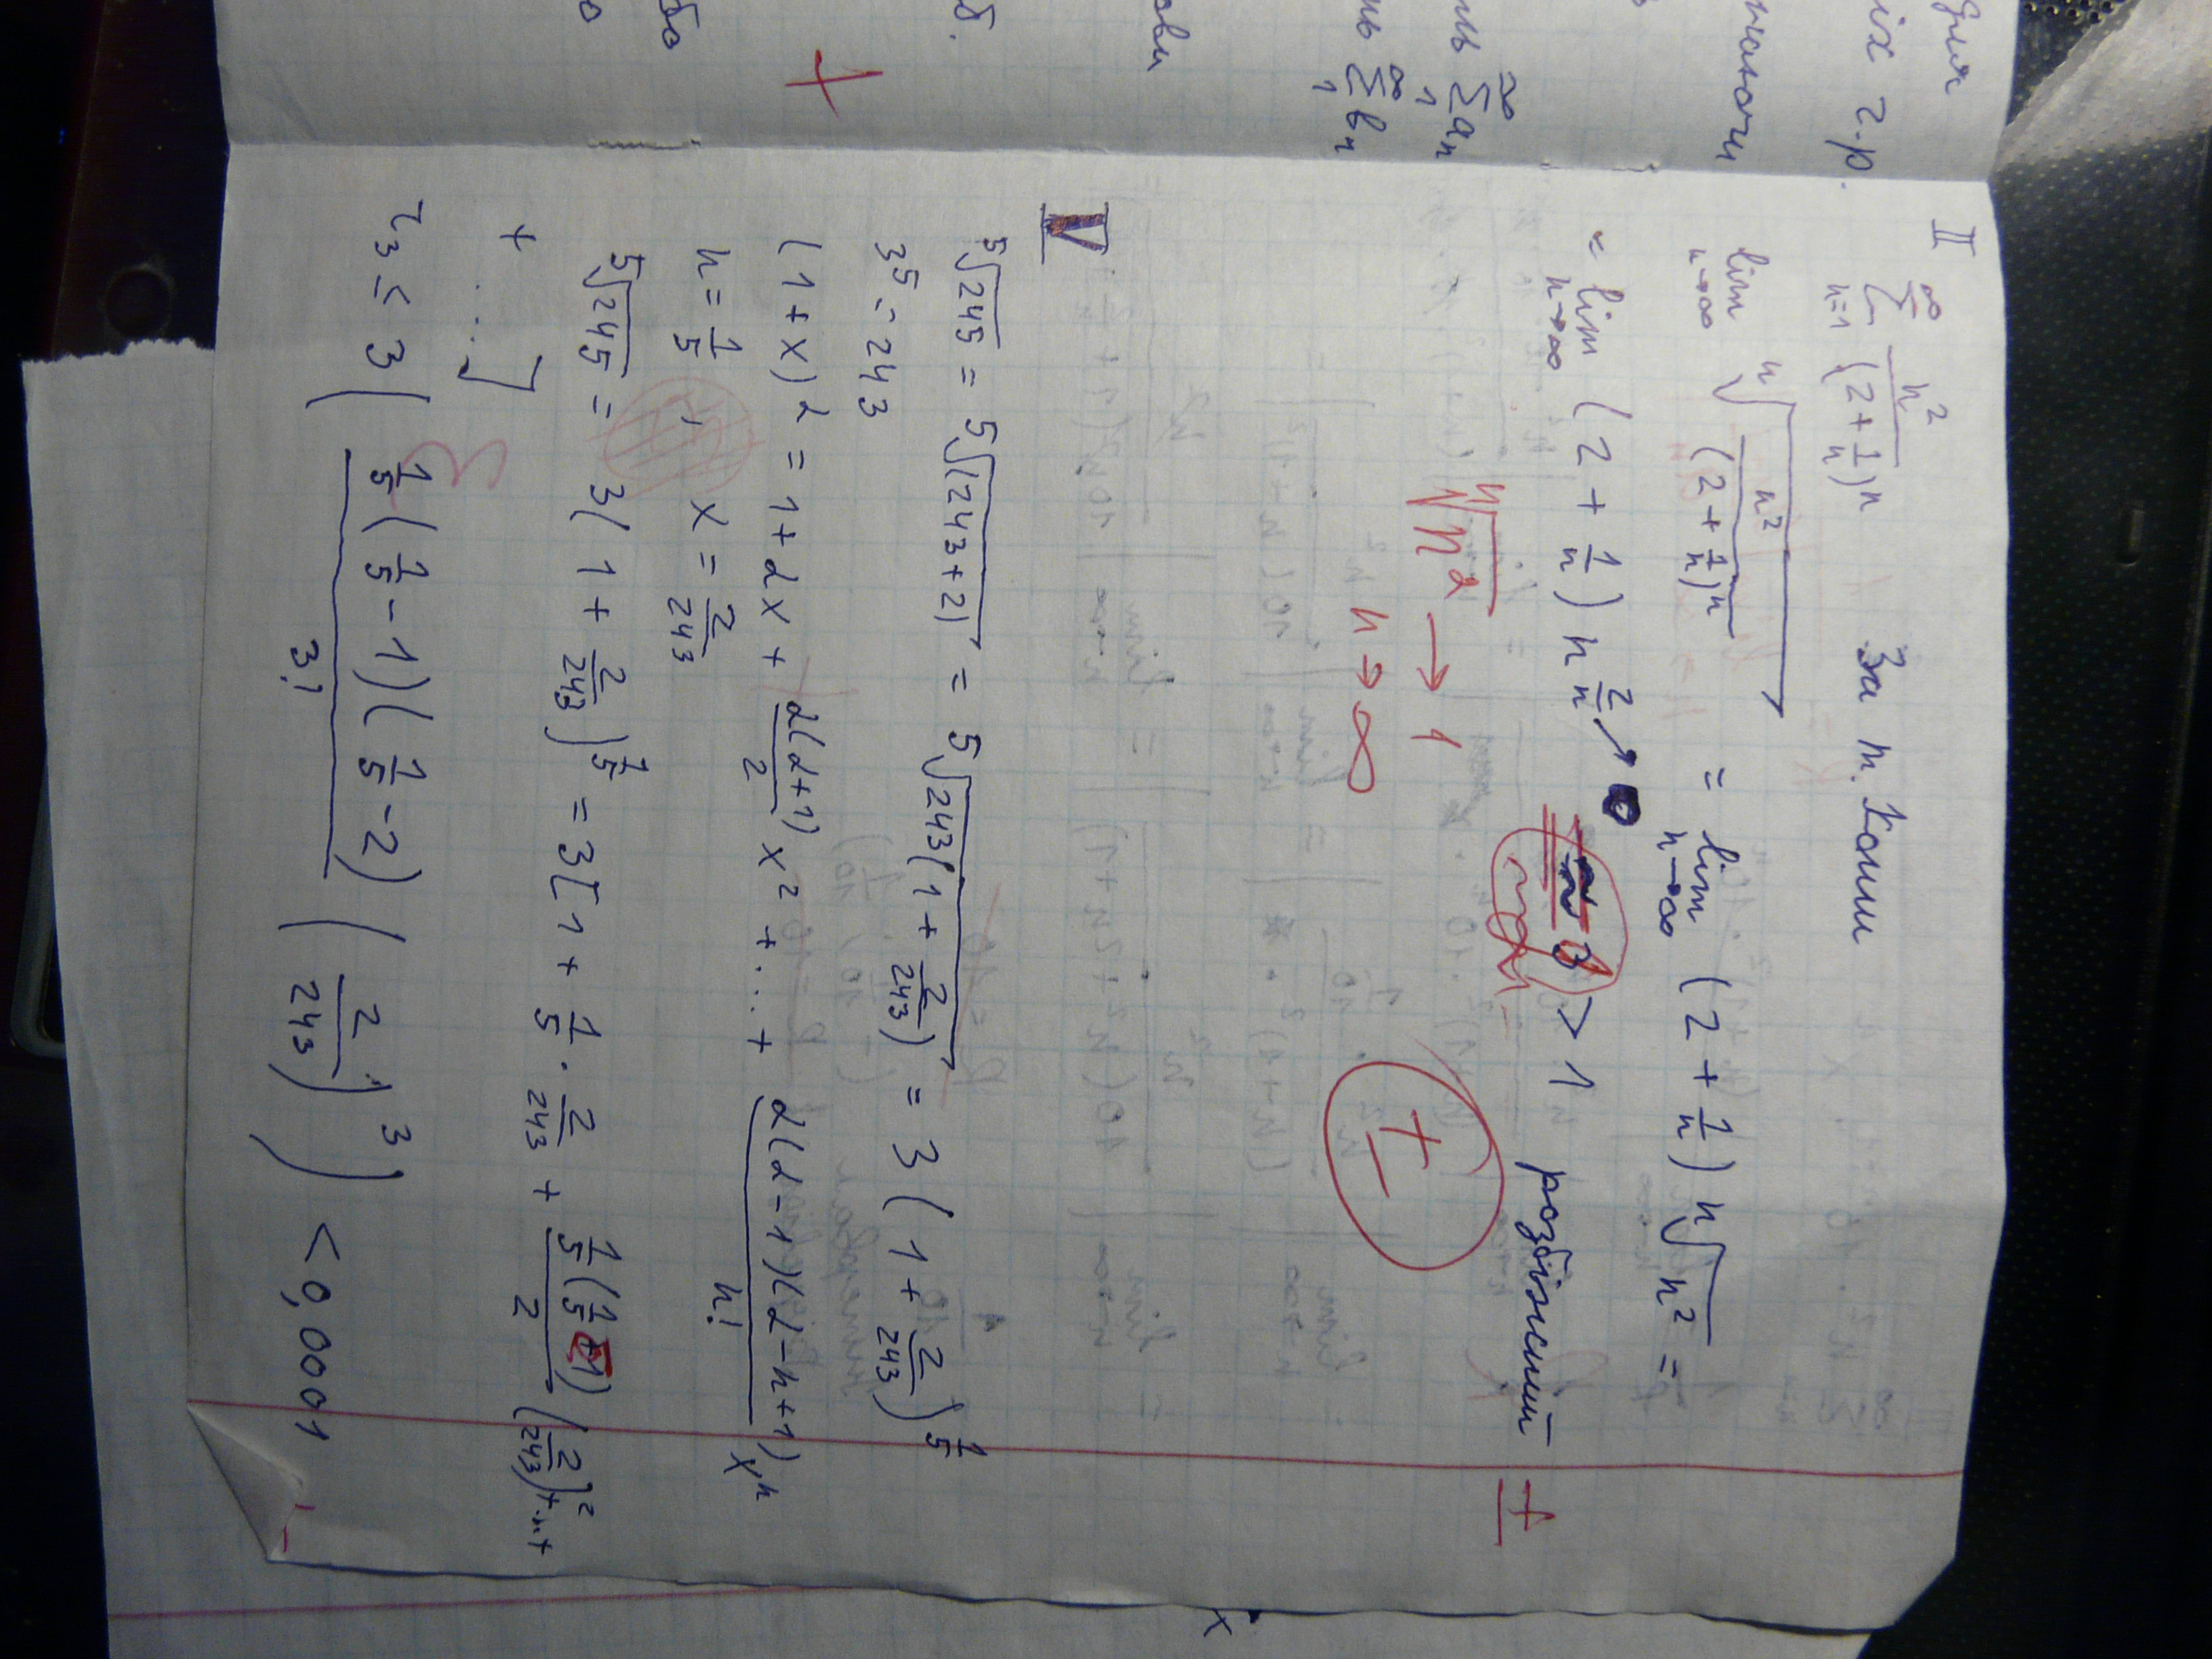 для
іх г.р.
значаючи
нь ∞ Σ 1 aₙ
нь ∞ Σ 1 bₙ
ови
б.
+
бо
о
II ∞ Σ n=1 n²/(2+1/n)ⁿ За т. Коши
lim n→∞ ⁿ√(n²/(2+1/n)ⁿ) = lim n→∞ (2+1/n) ⁿ√n² =
= lim n→∞ (2+1/n) n^(2/n) → 0 > 1 розбіжний ±
ⁿ√n² → 1
n→∞
±
V
⁵√245 = ⁵√(243+2) = ⁵√(243(1+2/243)) = 3(1+2/243)^(1/5)
3⁵ = 243
(1+x)^α = 1+αx + α(α+1)/2 x² + ... + α(α-1)(α-n+1)/n! xⁿ
n = 1/5, x = 2/243
⁵√245 = 3(1+2/243)^(1/5) = 3[1 + 1/5 · 2/243 + 1/5(1/5-1)/2 (2/243)² + ... +
+ ...]
r₃ ≤ 3 | 1/5(1/5-1)(1/5-2)/3! (2/243)³ | < 0,0001
x